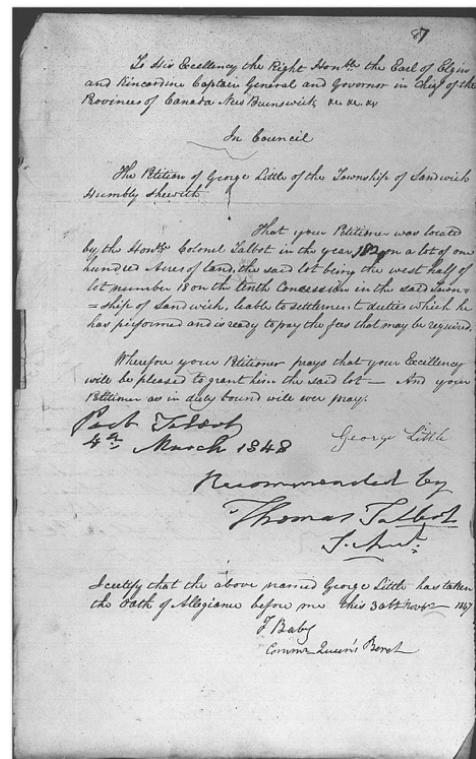 87
To His Excellency the Right Honble the Earl of Elgin
and Kincardine Captain General and Governor in Chief of the
Provinces of Canada New Brunswick &c. &c. &c
In Council
The Petition of George Little of the Township of Sandwich
Humbly sheweth
That your Petitioner was located
by the Honble Colonel Talbot in the year on a lot of one
hundred Acres of land, the said lot being the west half of
lot number 18 on the tenth Concession in the said Town=
=ship of Sandwich, leable to settlement duties which he
has performed and is ready to pay the fees that may be required.
Wherefore your Petitioner prays that your Excellency
will be pleased to grant him the said lot — And your
Petitioner as in duty bound will ever pray.
Port Talbot
4th March 1848
George Little
Recommended by
Thomas Talbot
I certify that the above named George Little has taken
the Oath of Allegiance before me this 30th Novr 1847
F Baby
Commr Queen's Bench